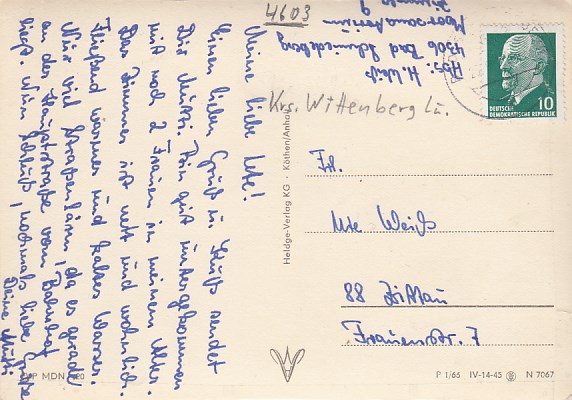 4603
Abs: H. Weiß
4306 Bad Schmiedeberg
Moorsanatorium
Zimmer 9
Krs. Wittenberg Lu.
Meine liebe Ute!
Einen lieben Gruß u. Kuß sendet
Dir Mutti. Bin gut untergekommen
mit noch 2 Frauen in meinem Alter.
Das Zimmer ist nett und wohnlich.
Fließend warmes und kaltes Wasser.
Nur viel Straßenlärm, da es gerade
an der Hauptstraße vom Bahnhof
liegt. Nun Schluß, nochmals liebe Grüße
Deine Mutti
10
DEUTSCHE
DEMOKRATISCHE REPUBLIK
Frl.
Ute Weiß
88 Zittau
Frauenstr. 7
Heldge-Verlag KG · Köthen/Anhalt
EVP MDN 0,20
P 1/66 IV-14-45 N 7067